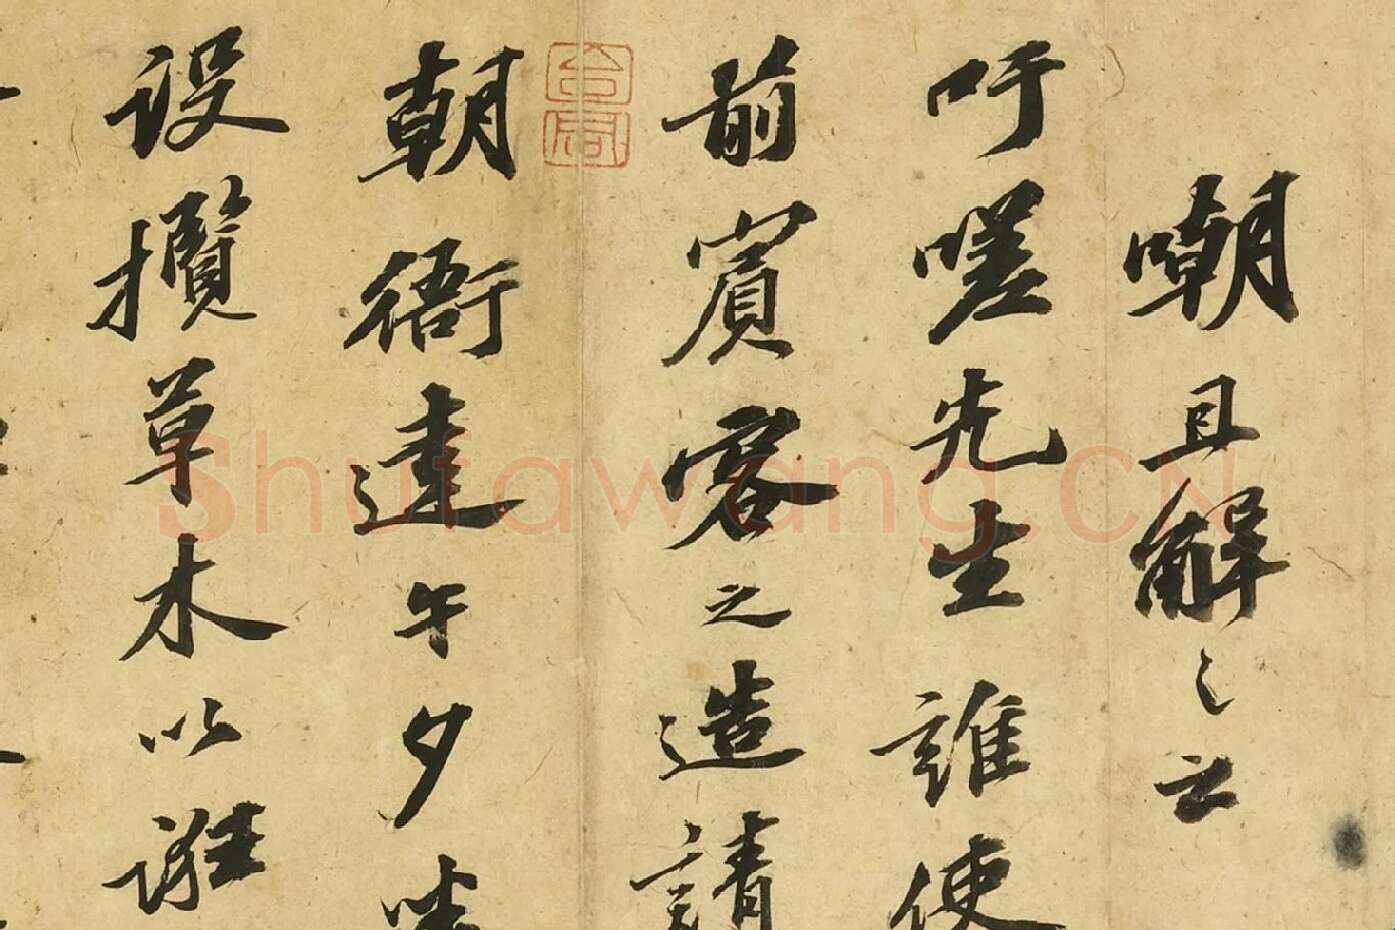 嘲且解之云
吁嗟先生誰使
前賓客之造請
朝衙達午夕坐
設攬草木以誑
Shufawang.CN